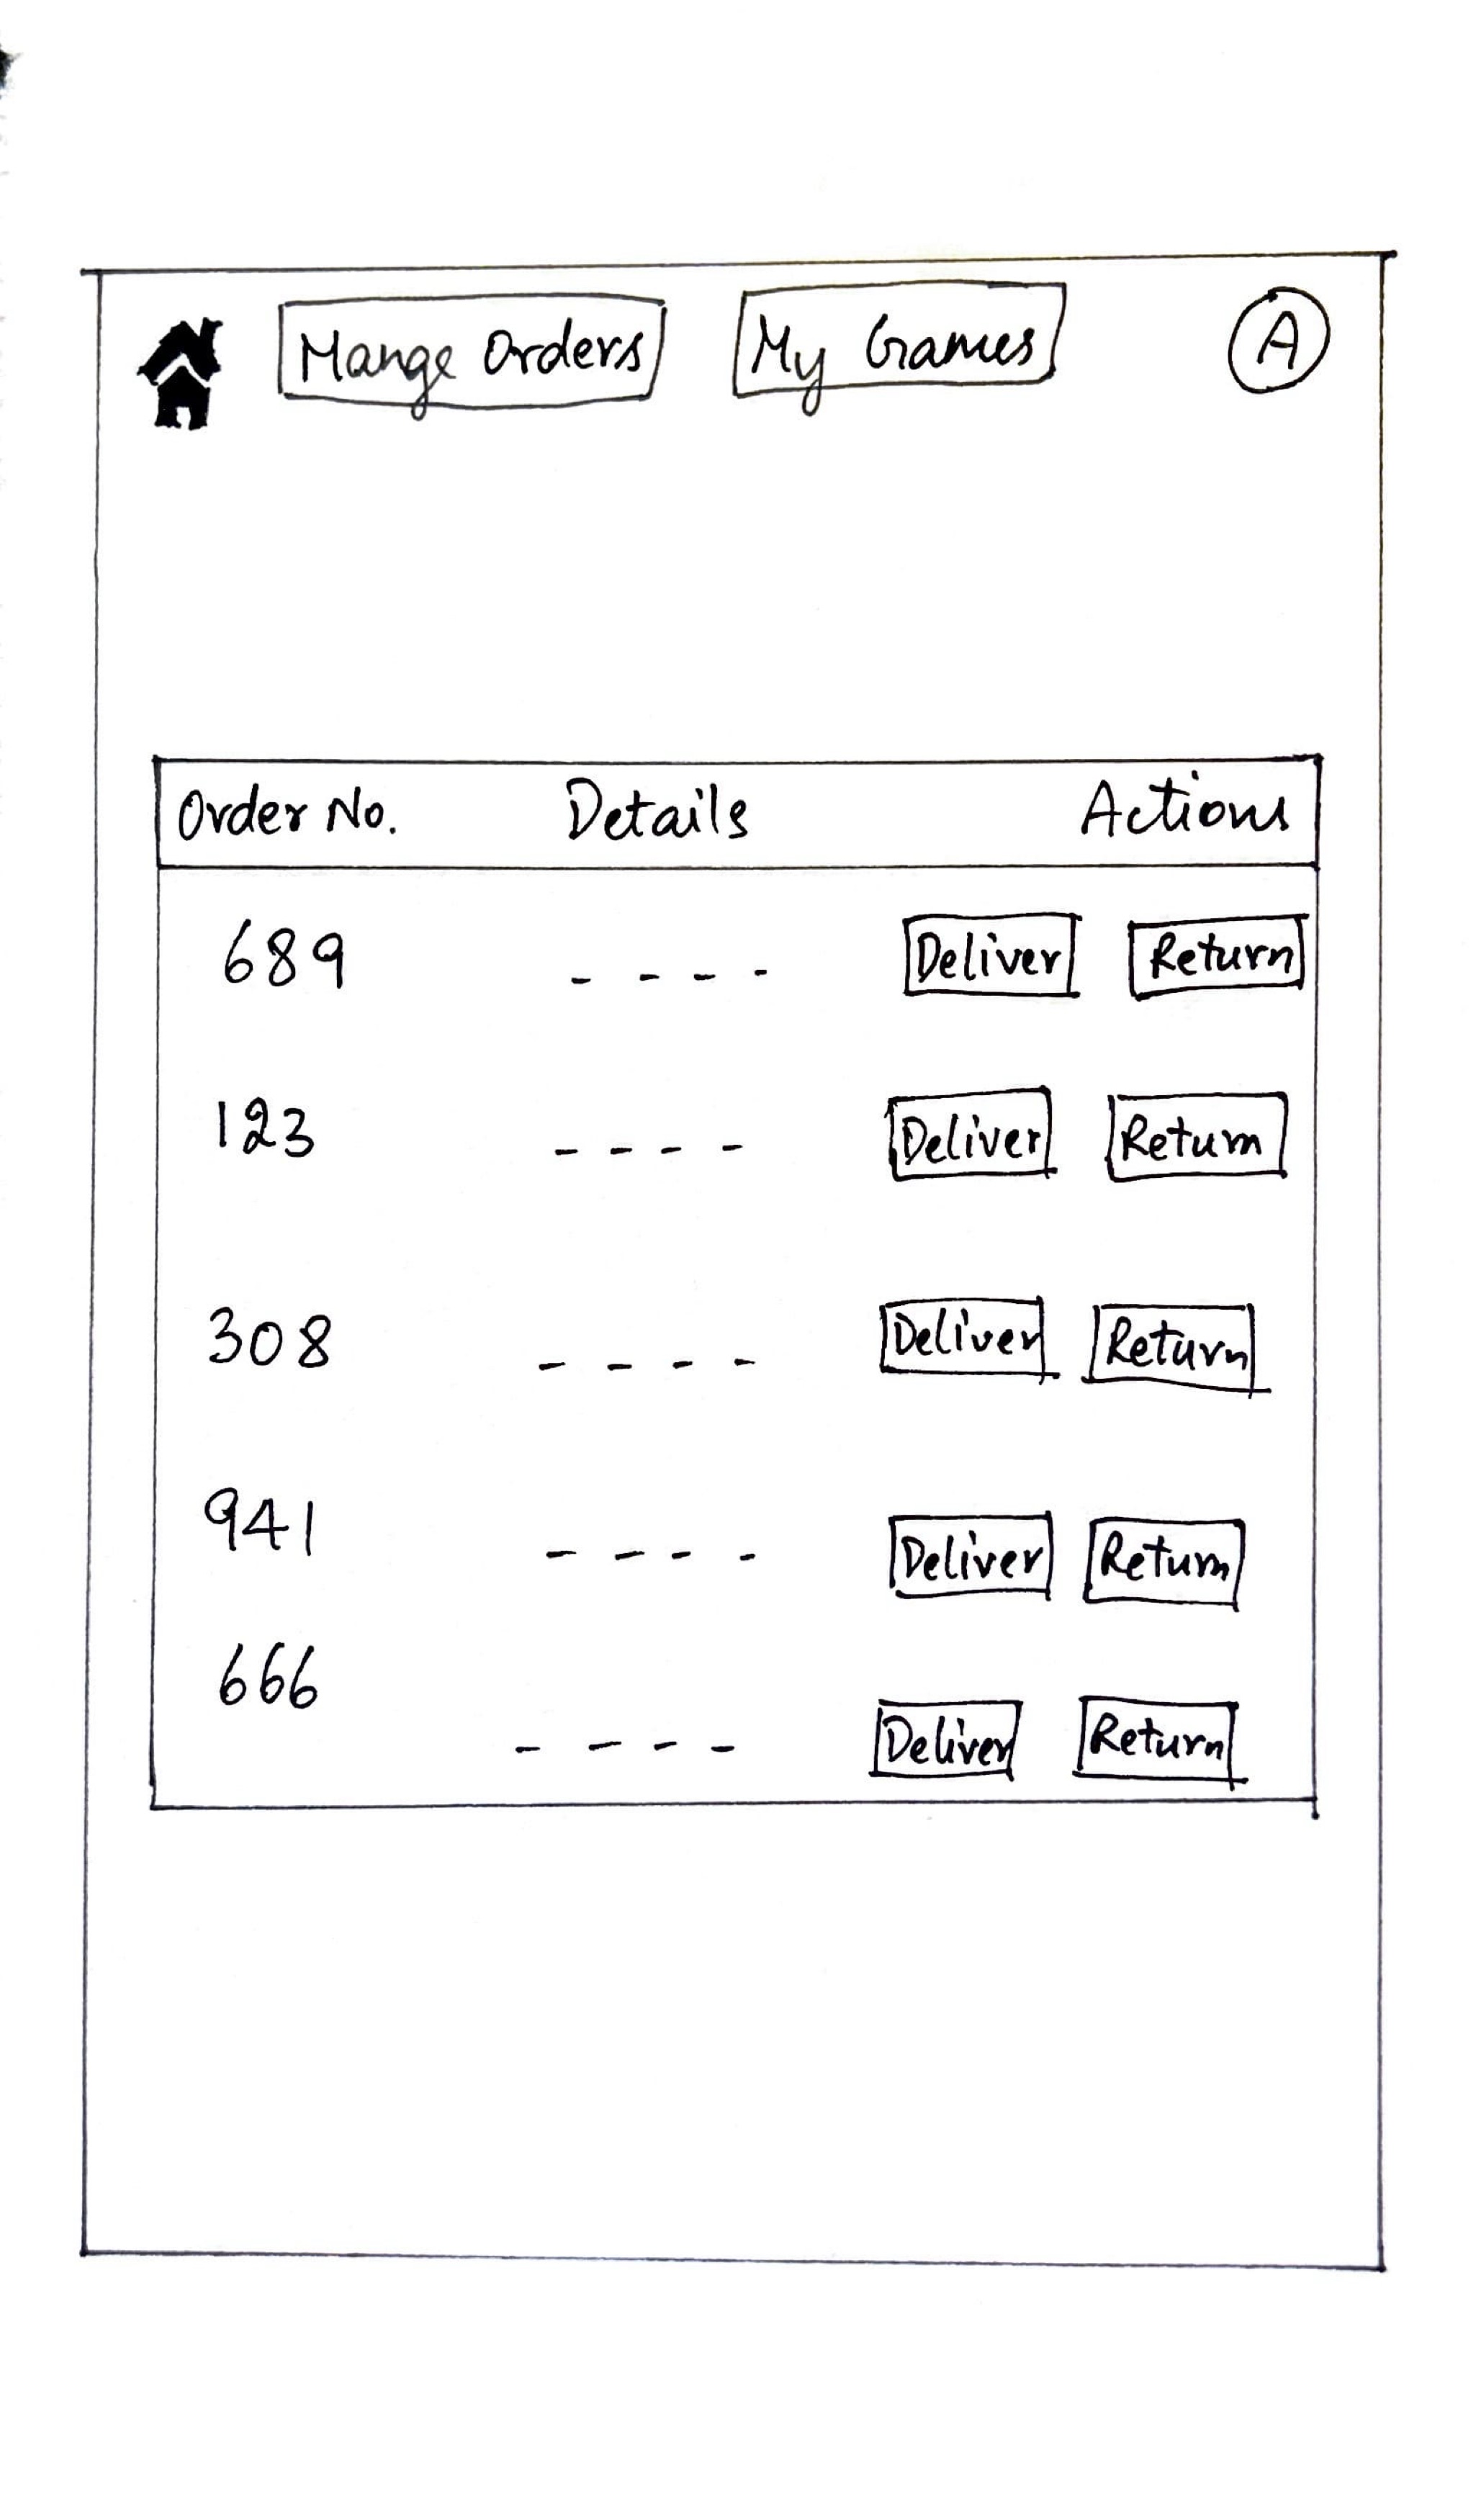 Mange Orders My Games A
Order No. Details Actions
689 - - - - Deliver Return
123 - - - - Deliver Return
308 - - - - Deliver Return
941 - - - - Deliver Return
666 - - - - Deliver Return